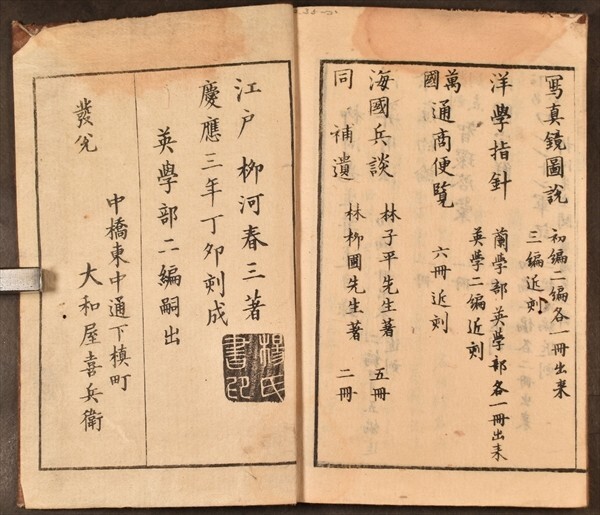 寫真鏡圖説 初編二編各一冊出来
三編近刻
洋學指針 蘭學部英學部各一冊出来
英學二編近刻
萬國通商便覧 六冊近刻
海國兵談 林子平先生著 五冊
同補遺 林柳圃先生著 二冊
江戸 柳河春三著
慶應三年丁卯刻成
英學部二編嗣出
發兌
中橋東中通下槙町
大和屋喜兵衛
楊氏
書印